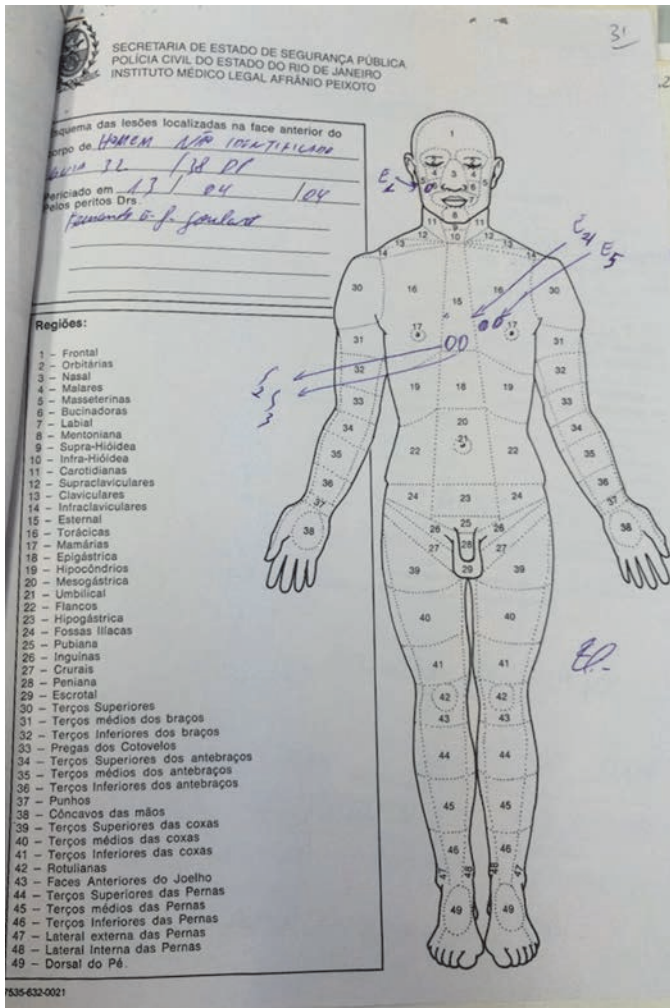 31
SECRETARIA DE ESTADO DE SEGURANÇA PÚBLICA
POLÍCIA CIVIL DO ESTADO DO RIO DE JANEIRO
INSTITUTO MÉDICO LEGAL AFRÂNIO PEIXOTO
esquema das lesões localizadas na face anterior do
corpo de HOMEM NÃO IDENTIFICADO
GUIA 32 /38 DP
Periciado em 13 / 04 /04
Pelos peritos Drs.
Fernando G. J. Goulart
Regiões:
1 – Frontal
2 – Orbitárias
3 – Nasal
4 – Malares
5 – Masseterinas
6 – Bucinadoras
7 – Labial
8 – Mentoniana
9 – Supra-Hióidea
10 – Infra-Hióidea
11 – Carotidianas
12 – Supraclaviculares
13 – Claviculares
14 – Infraclaviculares
15 – Esternal
16 – Torácicas
17 – Mamárias
18 – Epigástrica
19 – Hipocôndrios
20 – Mesogástrica
21 – Umbilical
22 – Flancos
23 – Hipogástrica
24 – Fossas Ilíacas
25 – Pubiana
26 – Inguinas
27 – Crurais
28 – Peniana
29 – Escrotal
30 – Terços Superiores
31 – Terços médios dos braços
32 – Terços Inferiores dos braços
33 – Pregas dos Cotovelos
34 – Terços Superiores dos antebraços
35 – Terços médios dos antebraços
36 – Terços Inferiores dos antebraços
37 – Punhos
38 – Côncavos das mãos
39 – Terços Superiores das coxas
40 – Terços médios das coxas
41 – Terços Inferiores das coxas
42 – Rotulianas
43 – Faces Anteriores do Joelho
44 – Terços Superiores das Pernas
45 – Terços médios das Pernas
46 – Terços Inferiores das Pernas
47 – Lateral externa das Pernas
48 – Lateral Interna das Pernas
49 – Dorsal do Pé.
7535-632-0021
1
2 2
4 3 4
5 5
E1 6 6
7
8
11 9 11
12 10 12
13 13
14 14
E4
E5
30 16 15 16 30
17 17
31 31
32 32
19 18 19
33 33
34 20 34
21
35 22 22 35
36 36
37 24 23 24 37
38 25 38
26 26
27 28 27
29
39 39
40 40
41 41
42 42
43 43
44 44
45 45
46 46
47 48 48 47
49 49